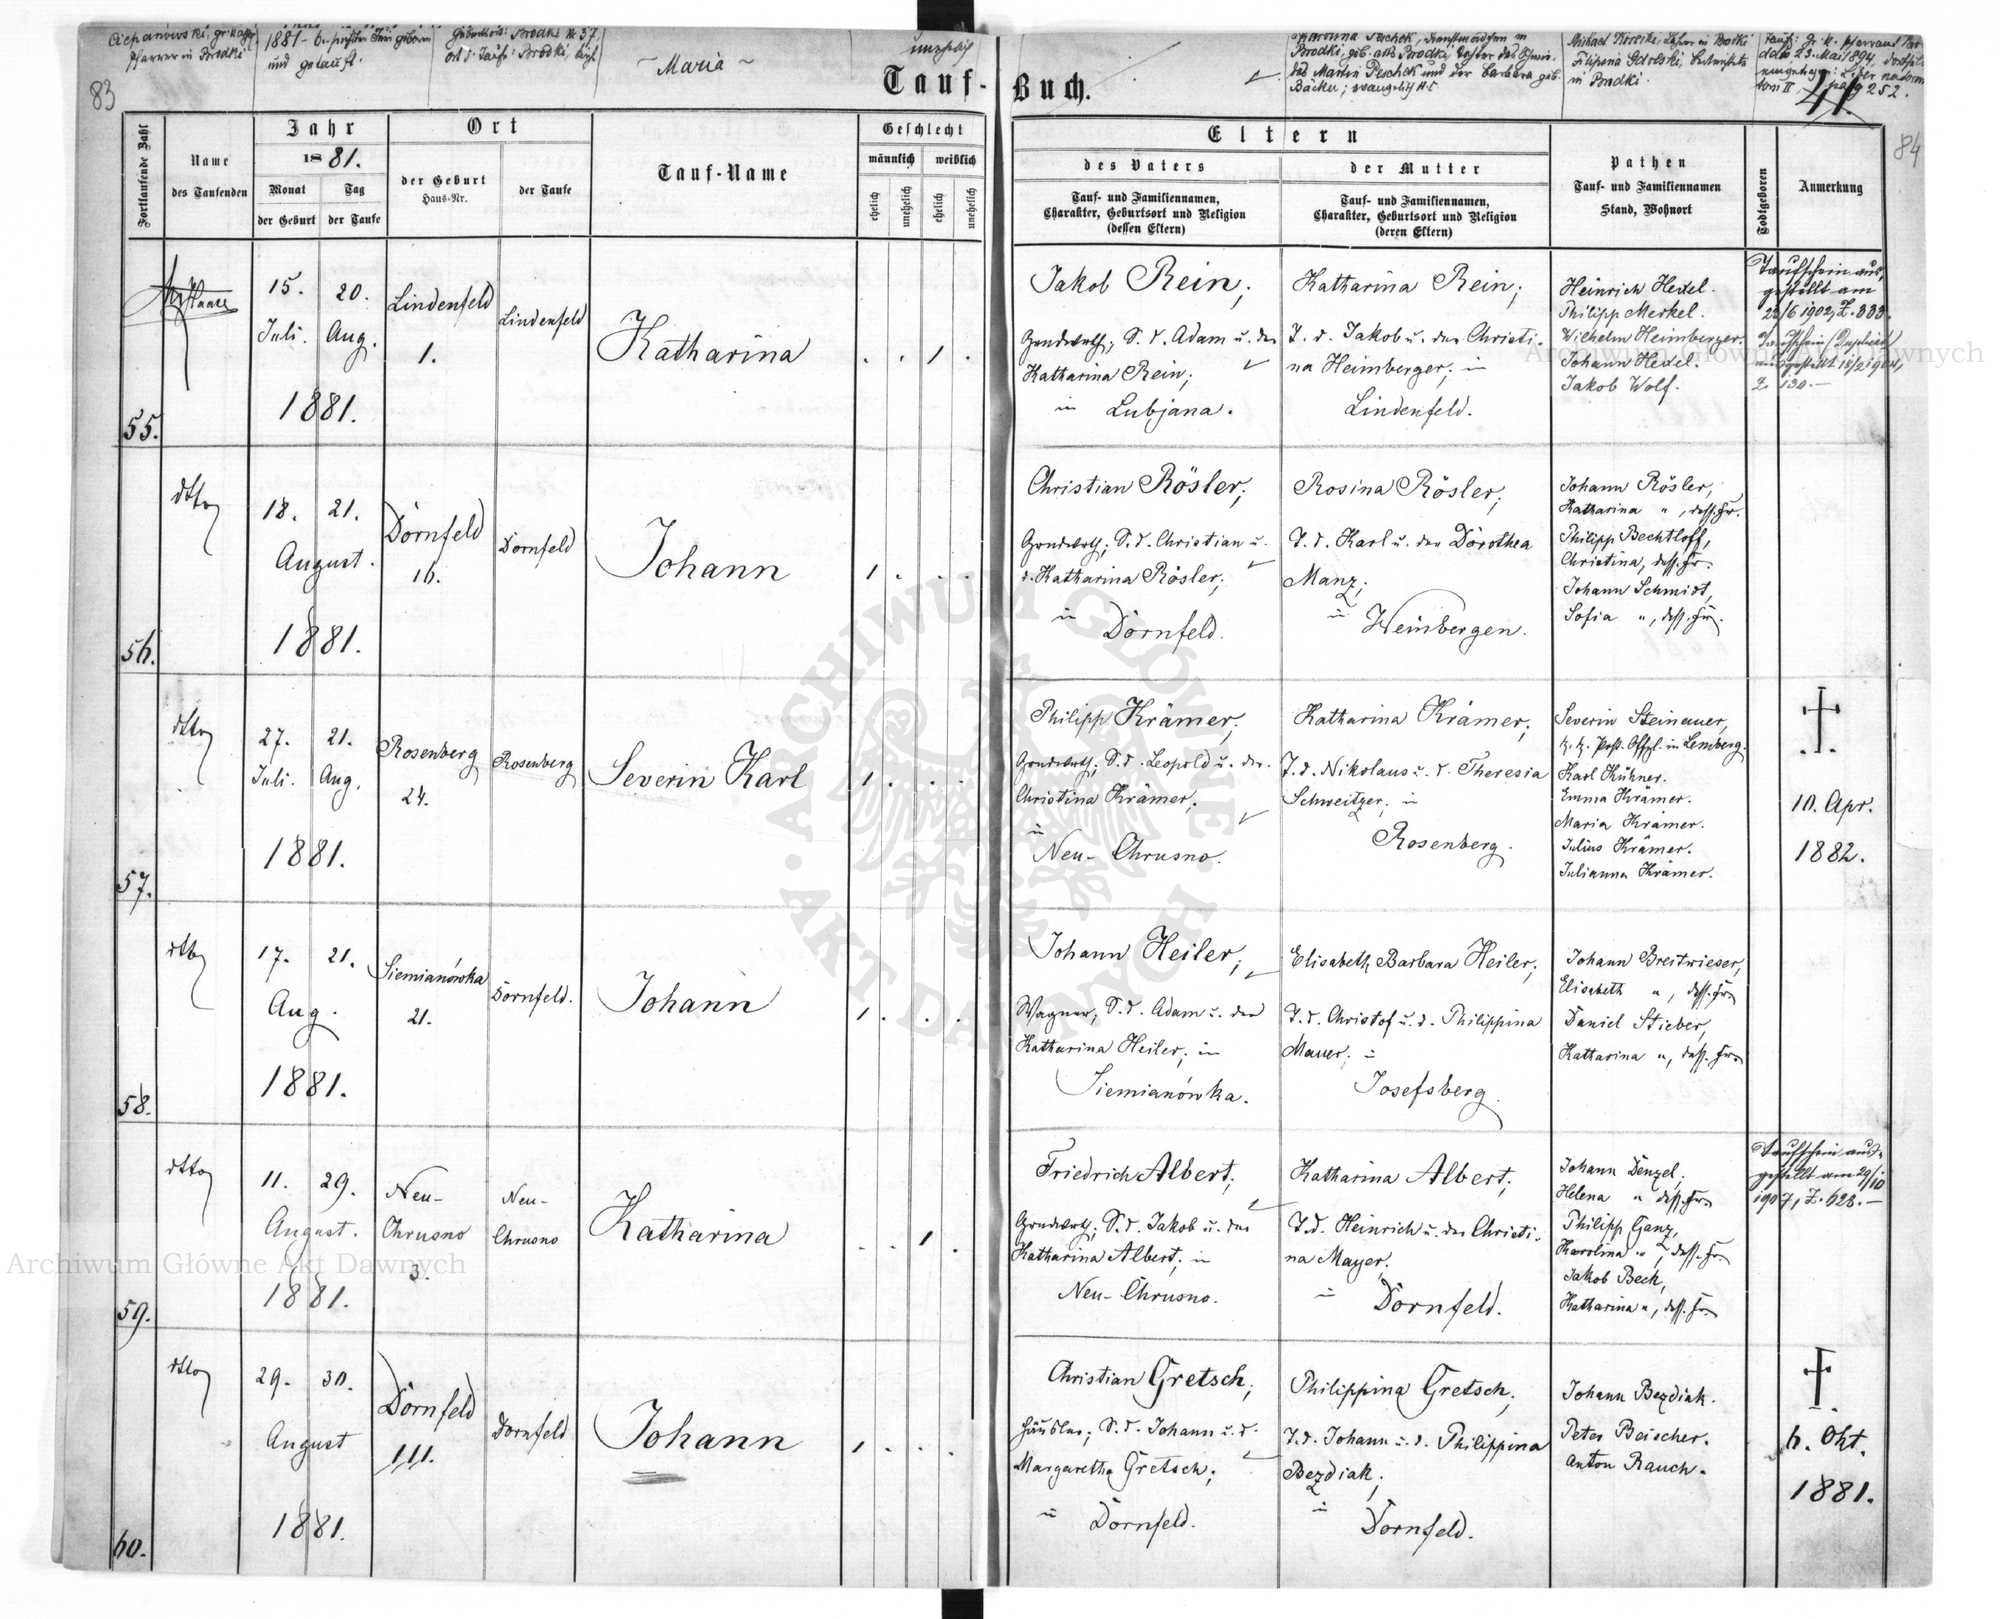 83
Pfarrer in Brodki
1881 -
und getauft.
Brodki Nr 37
Brodki,
- Maria -
Tauf-
Fortlaufende Zahl
Name
des Taufenden
Jahr
1881.
Monat
der Geburt
Tag
der Taufe
Ort
der Geburt
Haus-Nr.
der Taufe
Tauf-Name
Geschlecht
männlich
weiblich
ehelich
unehelich
ehelich
unehelich
55.
15.
Juli.
20.
Aug.
1881.
Lindenfeld
1.
Lindenfeld
Katharina
. . 1 .
56.
dtto
18. 21.
August.
1881.
Dornfeld
16.
Dornfeld
Johann
1 . . .
57.
dtto
27.
Juli.
21.
Aug.
1881.
Rosenberg
24.
Rosenberg
Severin Karl
1 . . .
58.
dtto
17. 21.
Aug.
1881.
Siemianówka
21.
Dornfeld.
Johann
1 . . .
59.
dtto
11. 29.
August.
1881.
Neu-
Chrusno
3.
Neu-
Chrusno
Katharina
. . 1 .
60.
dtto
29. 30.
August
1881.
Dornfeld
111.
Dornfeld
Johann
1 . . .
Buch.
Brodki, geb. Brodki, Tochter des
des Martin Peschek und der Barbara geb.
Bäcker; evangelisch A.C.
in Brodki.
23. Mai 1894,
tom II, pag 252.
41.
84
Eltern
des Vaters
Tauf- und Familiennamen,
Charakter, Geburtsort und Religion
(dessen Eltern)
der Mutter
Tauf- und Familiennamen,
Charakter, Geburtsort und Religion
(deren Eltern)
Pathen
Tauf- und Familiennamen
Stand, Wohnort
Todtgeboren
Anmerkung
Jakob Rein;
Grundwirth; S. d. Adam u. der
Katharina Rein;
in Lubjana.
Katharina Rein;
T. d. Jakob u. der Christi-
na Heimberger; in
Lindenfeld.
Heinrich Hexel.
Philipp Merkel.
Wilhelm Heimberger.
Johann Hexel.
Jakob Wolf.
Taufschein aus-
gestellt am
23/6 1902, Z. 333.
Taufschein (Duplicat)
ausgestellt 18/2 1904,
Z. 130.—
Christian Rösler;
Grundwirth; S. d. Christian u.
d. Katharina Rösler;
in Dornfeld.
Rosina Rösler;
T. d. Karl u. der Dorothea
Manz;
in Weinbergen.
Johann Rösler,
Katharina ", dess. Fr.
Philipp Bechtloff,
Christina, dess. Fr.
Johann Schmidt,
Sofia ", dess. Fr.
Philipp Krämer;
Grundwirth; S. d. Leopold u. der
Christina Krämer;
in
Neu-Chrusno.
Katharina Krämer;
T. d. Nikolaus u. d. Theresia
Schweitzer; in
Rosenberg.
Severin Steinauer,
k. k. Post-Offzl. in Lemberg.
Karl Kühner.
Emma Krämer.
Maria Krämer.
Julius Krämer.
Julianna Krämer.
10. Apr.
1882.
Johann Heiler;
Wagner; S. d. Adam u. der
Katharina Heiler; in
Siemianówka.
Elisabeth Barbara Heiler;
T. d. Christof u. d. Philippina
Mauer; in
Josefsberg.
Johann Breitwieser,
Elisabeth ", dess. Fr.
Daniel Stieber,
Katharina ", dess. Fr.
Friedrich Albert;
Grundwirth; S. d. Jakob u. der
Katharina Albert; in
Neu-Chrusno.
Katharina Albert;
T. d. Heinrich u. der Christi-
na Mayer;
in Dornfeld.
Johann Denzel;
Helena " dess. Fr.
Philipp Ganz,
Karolina ", dess. Fr.
Jakob Beck,
Katharina ", dess. Fr.
Taufschein aus-
gestellt am 29/10
1907, Z. 628.—
Christian Gretsch;
Häusler; S. d. Johann u. d.
Margaretha Gretsch;
in Dornfeld.
Philippina Gretsch;
T. d. Johann u. d. Philippina
Bezdiak;
in Dornfeld.
Johann Bezdiak.
Peter Beischer.
Anton Rauch.
6. Okt.
1881.
Archiwum Główne Akt Dawnych
Archiwum Główne Akt Dawnych
ARCHIWUM GŁÓWNE · AKT DAWNYCH ·